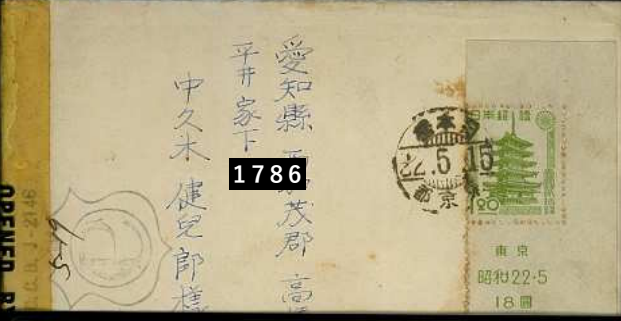 愛知縣 西加茂郡 高
平井家下
中久木 健兒郎様
1786
22.5.15
東京
日本郵便
1.20
東京
昭和22・5
18圓
OPENED BY
C.C.D. J-2146